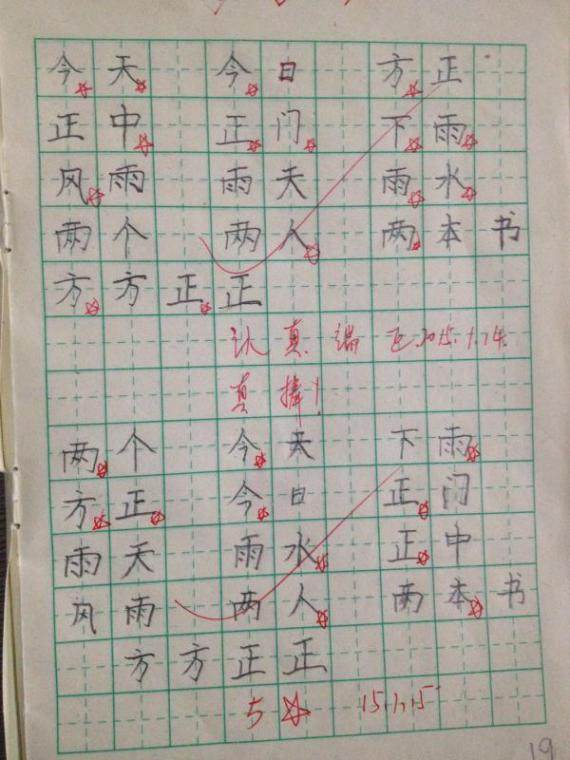 今天 今日 方正
正中 正门 下雨
风雨 雨天 雨水
两个 两人 两本书
方方正正
认真 端正.2015.1.14.
真棒!
两个 今天 下雨
方正 今日 正门
雨天 雨水 正中
风雨 两人 两本书
方方正正
5☆ 15.1.15
19